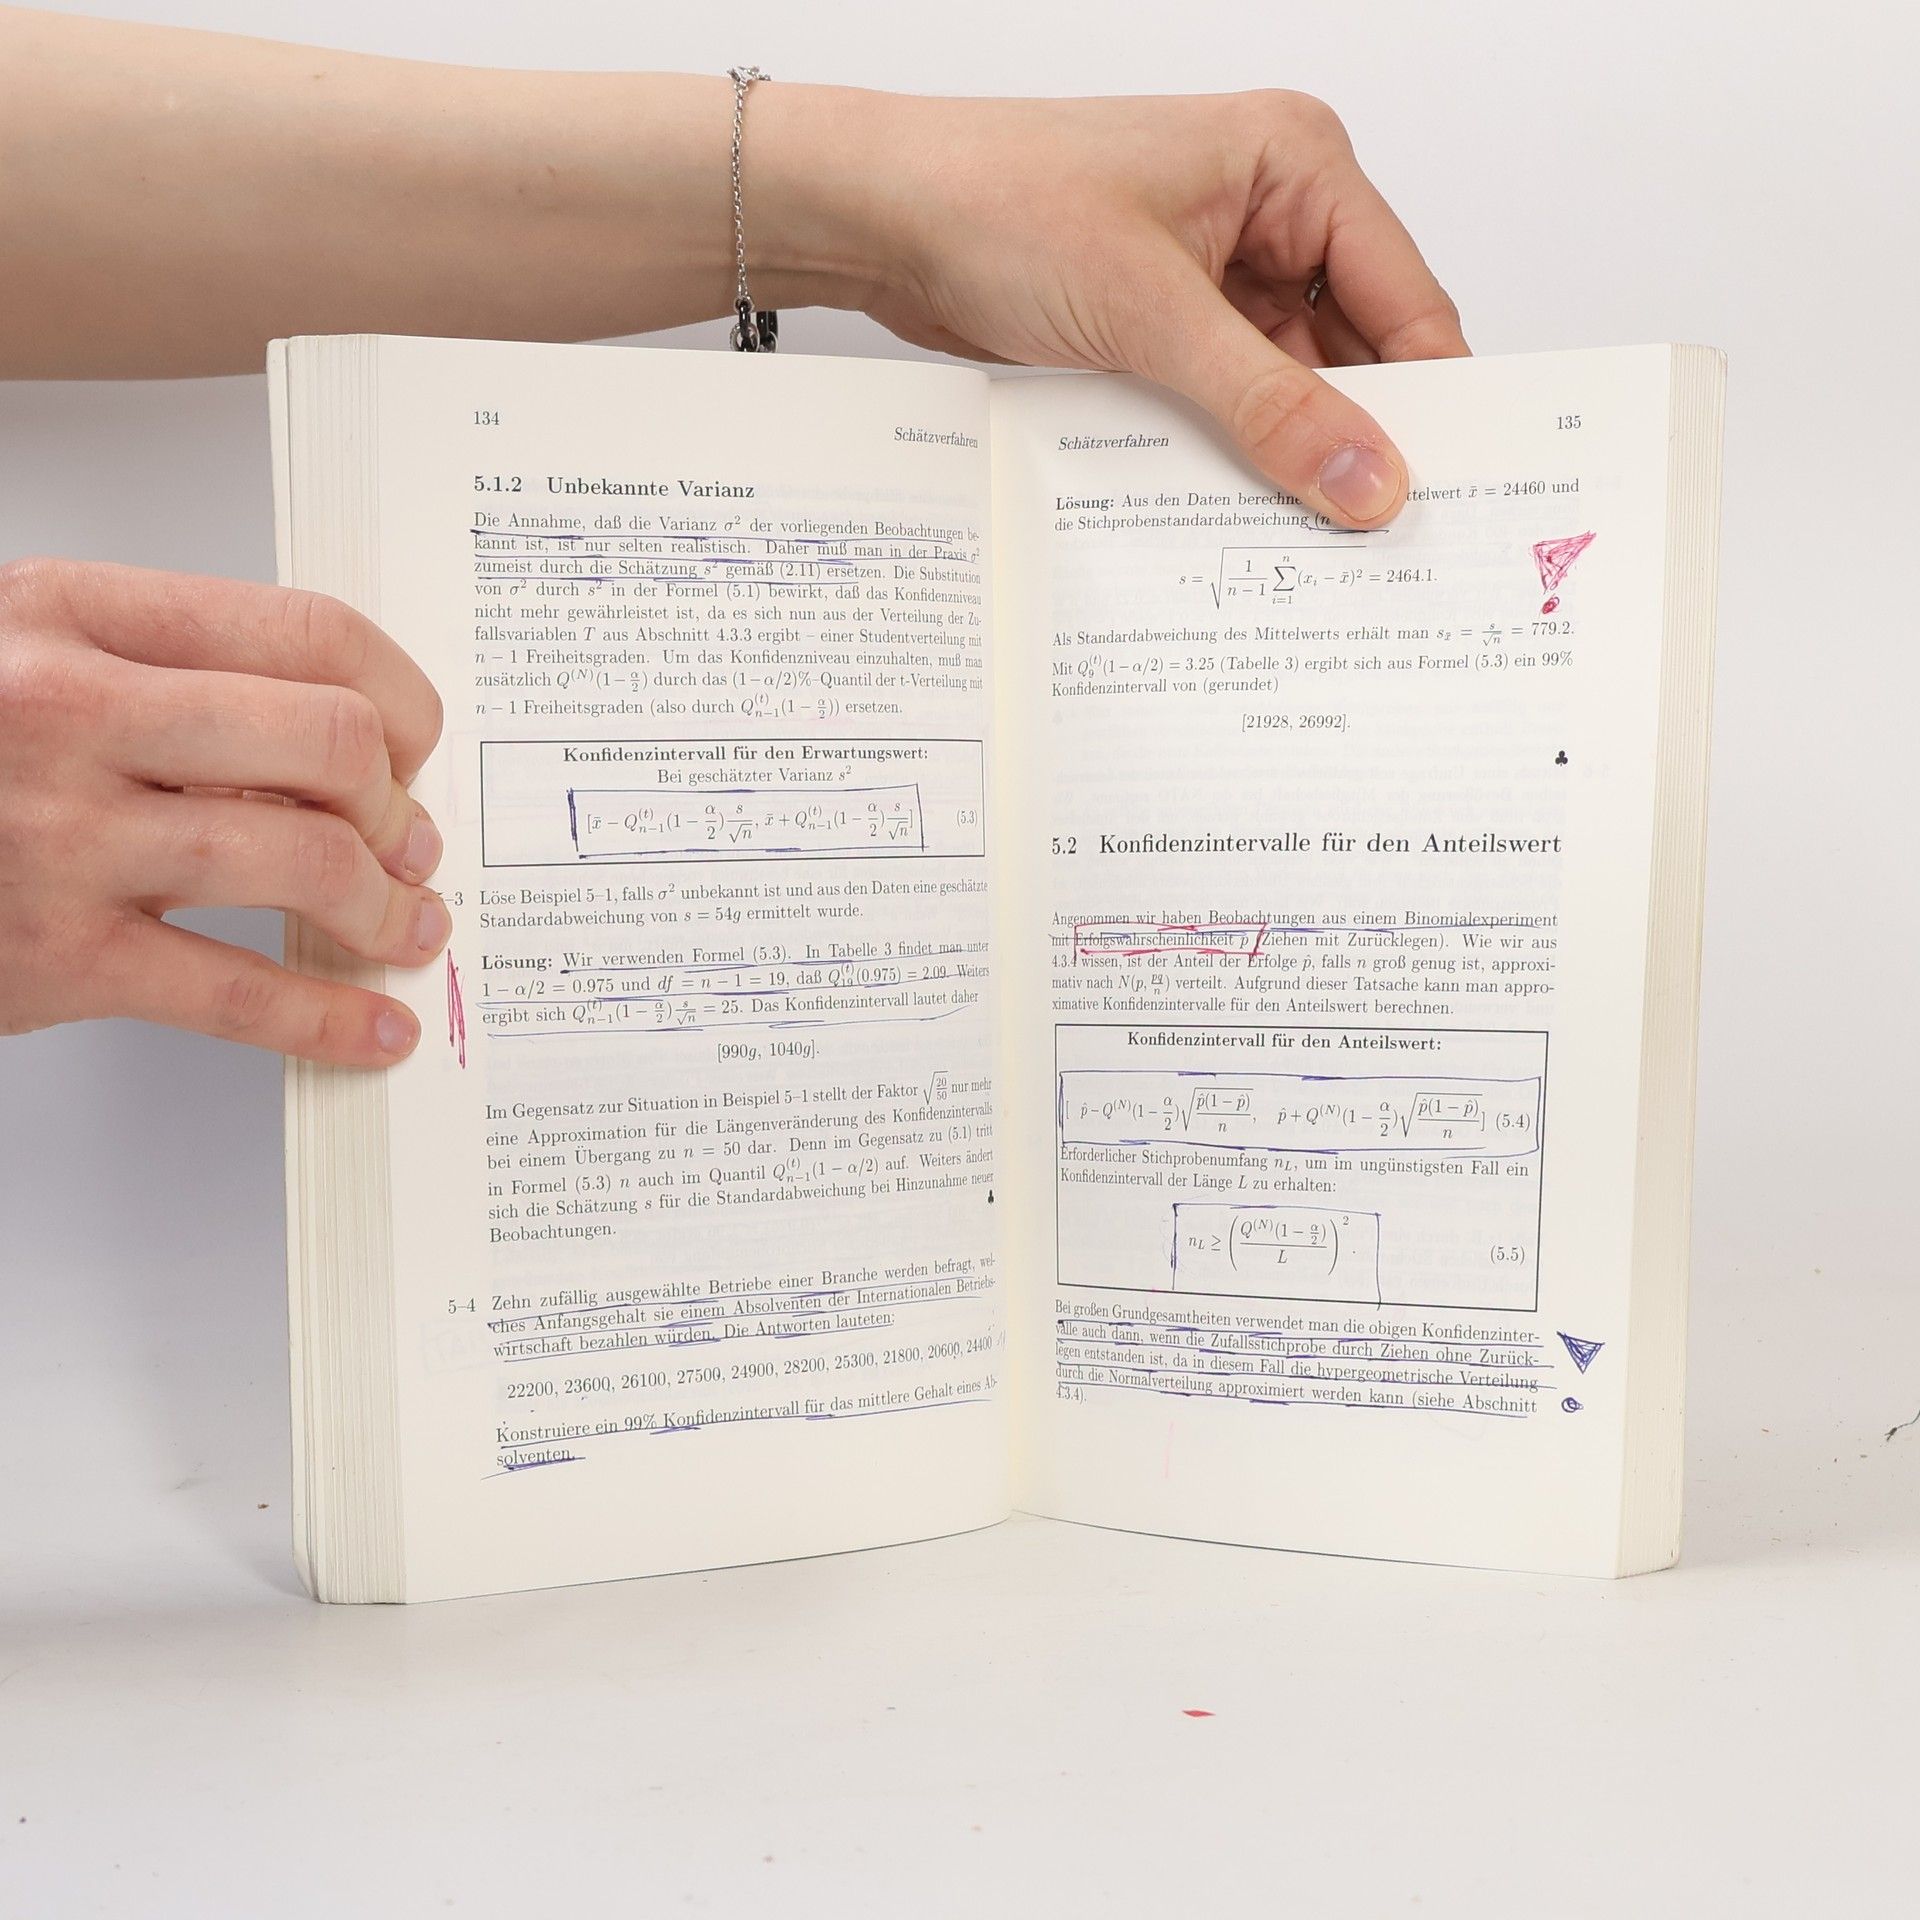 134
Schätzverfahren
5.1.2 Unbekannte Varianz
Die Annahme, daß die Varianz σ² der vorliegenden Beobachtungen be-
kannt ist, ist nur selten realistisch. Daher muß man in der Praxis σ²
zumeist durch die Schätzung s² gemäß (2.11) ersetzen. Die Substitution
von σ² durch s² in der Formel (5.1) bewirkt, daß das Konfidenzniveau
nicht mehr gewährleistet ist, da es sich nun aus der Verteilung der Zu-
fallsvariablen T aus Abschnitt 4.3.3 ergibt – einer Studentverteilung mit
n − 1 Freiheitsgraden. Um das Konfidenzniveau einzuhalten, muß man
zusätzlich Q^(N)(1 − α/2) durch das (1−α/2)%-Quantil der t-Verteilung mit
n − 1 Freiheitsgraden (also durch Q_{n−1}^{(t)}(1 − α/2)) ersetzen.
Konfidenzintervall für den Erwartungswert:
Bei geschätzter Varianz s²
[x̄ − Q_{n−1}^{(t)}(1 − α/2) s/√n, x̄ + Q_{n−1}^{(t)}(1 − α/2) s/√n] (5.3)
–3 Löse Beispiel 5–1, falls σ² unbekannt ist und aus den Daten eine geschätzte
Standardabweichung von s = 54g ermittelt wurde.
Lösung: Wir verwenden Formel (5.3). In Tabelle 3 findet man unter
1 − α/2 = 0.975 und df = n − 1 = 19, daß Q_{19}^{(t)}(0.975) = 2.09. Weiters
ergibt sich Q_{n−1}^{(t)}(1 − α/2) s/√n = 25. Das Konfidenzintervall lautet daher
[990g, 1040g].
Im Gegensatz zur Situation in Beispiel 5–1 stellt der Faktor √(20/50) nur mehr
eine Approximation für die Längenveränderung des Konfidenzintervalls
bei einem Übergang zu n = 50 dar. Denn im Gegensatz zu (5.1) tritt
in Formel (5.3) n auch im Quantil Q_{n−1}^{(t)}(1 − α/2) auf. Weiters ändert
sich die Schätzung s für die Standardabweichung bei Hinzunahme neuer
Beobachtungen. ♣
5–4 Zehn zufällig ausgewählte Betriebe einer Branche werden befragt, wel-
ches Anfangsgehalt sie einem Absolventen der Internationalen Betriebs-
wirtschaft bezahlen würden. Die Antworten lauteten:
22200, 23600, 26100, 27500, 24900, 28200, 25300, 21800, 20600, 24400
Konstruiere ein 99% Konfidenzintervall für das mittlere Gehalt eines Ab-
solventen.
Schätzverfahren
135
Lösung: Aus den Daten berechne ttelwert x̄ = 24460 und
die Stichprobenstandardabweichung (n
s = √(1/(n − 1) ∑_{i=1}^{n} (x_i − x̄)²) = 2464.1.
Als Standardabweichung des Mittelwerts erhält man s_x̄ = s/√n = 779.2.
Mit Q_9^{(t)}(1 − α/2) = 3.25 (Tabelle 3) ergibt sich aus Formel (5.3) ein 99%
Konfidenzintervall von (gerundet)
[21928, 26992].
♣
5.2 Konfidenzintervalle für den Anteilswert
Angenommen wir haben Beobachtungen aus einem Binomialexperiment
mit Erfolgswahrscheinlichkeit p (Ziehen mit Zurücklegen). Wie wir aus
4.3.4 wissen, ist der Anteil der Erfolge p̂, falls n groß genug ist, approxi-
mativ nach N(p, pq/n) verteilt. Aufgrund dieser Tatsache kann man appro-
ximative Konfidenzintervalle für den Anteilswert berechnen.
Konfidenzintervall für den Anteilswert:
[ p̂ − Q^(N)(1 − α/2)√(p̂(1 − p̂)/n), p̂ + Q^(N)(1 − α/2)√(p̂(1 − p̂)/n)] (5.4)
Erforderlicher Stichprobenumfang n_L, um im ungünstigsten Fall ein
Konfidenzintervall der Länge L zu erhalten:
n_L ≥ (Q^(N)(1 − α/2)/L)². (5.5)
Bei großen Grundgesamtheiten verwendet man die obigen Konfidenzinter-
valle auch dann, wenn die Zufallsstichprobe durch Ziehen ohne Zurück-
legen entstanden ist, da in diesem Fall die hypergeometrische Verteilung
durch die Normalverteilung approximiert werden kann (siehe Abschnitt
4.3.4).